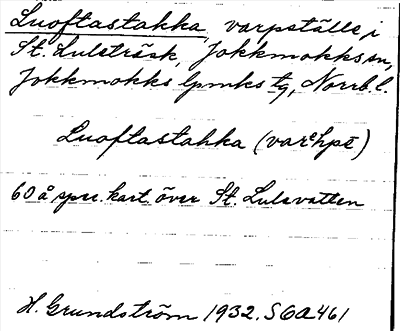 Luoftastakka, varpställe i
St. Luleträsk, Jokkmokks sn,
Jokkmokks lpmks tg, Norrb. l.
Luoftastahka (varᵉhpi)
60 å spec. kart. över St. Lulevatten
H. Grundström 1932. S 60 A 461